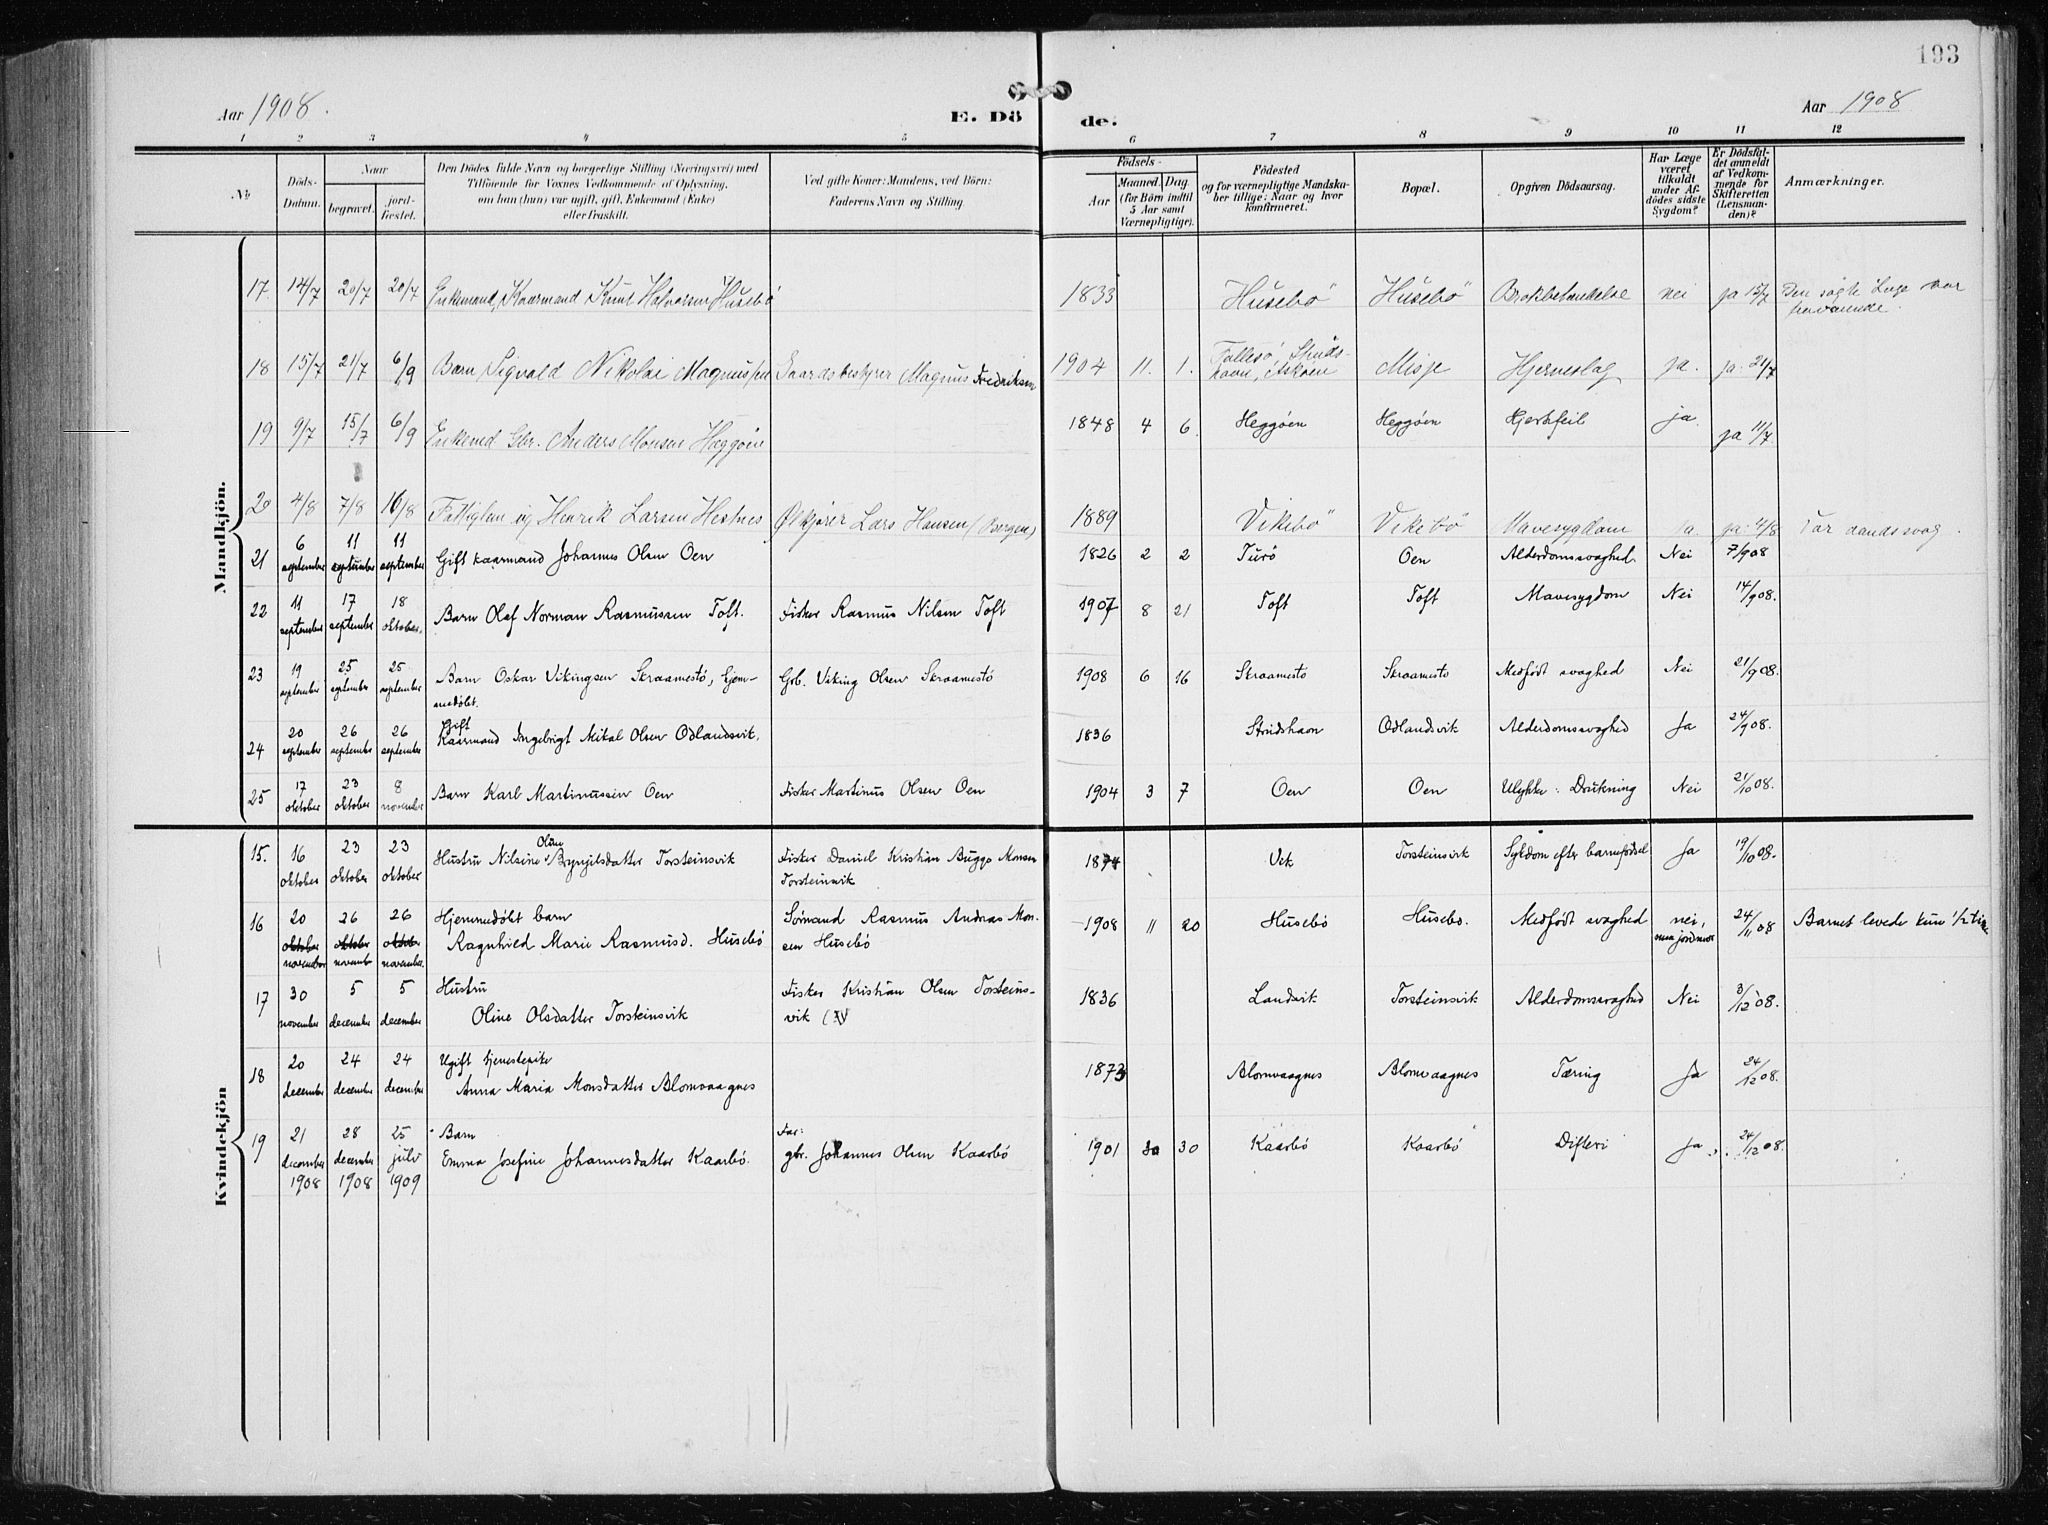 193
Aar 1908.
E. Döde.
Aar 1908
1 2 3 4 5 6 7 8 9 10 11 12
No
Döds-Datum.
Naar
begravet.
jord-fæstet.
Den Dödes fulde Navn og borgerlige Stilling (Næringsvei) med
Tilföiende for Voxnes Vedkommende af Oplysning,
om han (hun) var ugift, gift, Enkemand (Enke)
eller fraskilt.
Ved gifte Koner: Mandens, ved Börn:
Faderens Navn og Stilling.
Födsels-
Aar
Maaned. Dag.
(for Börn indtil
5 Aar samt
Værnepligtige).
Födested
og for værnepligtige Mandska-
ber tillige: Naar og hvor
konfirmeret.
Bopæl.
Opgiven Dödsaarsag.
Har Læge
været
tilkaldt
under Af-
dödes sidste
Sygdom?
Er Dödsfal-
det anmeldt
af Vedkom-
mende for
Skifteretten
(Lensman-
den)?
Anmærkninger.
Mandkjön.
17. 14/7 20/7 20/7 Enkemand, Kaarmand Knut Halvorsen Husebö 1833 Husebö Husebö Brokbetændelse nei ja 15/7 Den søgte Læge var
fraværende.
18 15/7 21/7 6/9 Barn Sigvald Nikolai Magnussen Gaardsbestyrer Magnus Fredriksen 1904 11. 1. Misje Hjerneslag ja. ja. 21/7
19 9/7 15/7 6/9 Enkemd Gbr. Anders Monsen Heggøen 1848 4 6. Heggøen Heggøen Hjertefeil ja. ja 11/7
20 4/8 7/8 16/8 Fattiglem ug Henrik Larsen Hestnes Ølkjører Lars Hansen (Bergen) 1889 Vikebö Vikebö Mavesygdom ja. ja. 4/8 Var aandssvag.
21 6 september 11 september 11 september Gift kaarmand Johannes Olsen Oen 1826 2 2 Turö Oen Alderdomssvaghed. Nei 7/9 08
22 11 september 17 september 18 oktober. Barn Olaf Norman Rasmussen Toft. Fisker Rasmus Nilsen Toft 1907 8 21 Toft Toft Mavesygdom Nei 14/9 08.
23 19 september 25 september 25 september Barn Oskar Vikingsen Skraamestø, hjem-
medøbt. Grb. Viking Olsen Skraamestø 1908 6 16 Skraamestø Skraamestø Medfødt svaghed Nei 21/9 08.
24 20 september 26 september 26 september Gift
Kaarmand Ingebrigt Mikal Olsen Odlandsvik. 1836 Strudshavn Odlandsvik Alderdomssvaghed Ja 24/9 08.
25 17 oktober 23 oktober 8 november Barn Karl Martinussen Oen Fisker Martinus Olsen Oen 1904 3 7 Oen Oen Ulykke: Drukning Nei 21/10 08.
Kvindekjön
15. 16 oktober 23 oktober 23 oktober Hustru Nilsine Oline Brynjelsdatter Torsteinsvik Fisker Daniel Kristian Bugge Monsen
Torsteinsvik 1874 Vik Torsteinsvik Sykdom efter barnefødsel Ja 19/10 08.
16 20 oktober november 26 oktober november 26 oktober november. Hjemmedøbt barn
Ragnhild Marie Rasmusd. Husebø Sømand Rasmus Andreas Mon-
sen Husebø 1908 11 20 Husebø Husebø. Medfødt svaghed nei,
men jordmor 24/11 08 Barnet levede kun 1/2 time
17 30 november 5 december 5 december Hustru
Oline Olsdatter Torsteinsvik Fisker Kristian Olsen Torsteins-
vik 1836 Landsvik Torsteinsvik Alderdomssvaghed Nei 3/12 08.
18 20 december 24 december 24 december Ugift tjenestepike
Anna Maria Monsdatter Blomvaagnes 1873 Blomvaagnes Blomvaagnes Tæring Ja 24/12 08.
19 21 december 1908 28 december 1908 25 juli 1909 Barn
Emma Josefine Johannesdatter Kaarbø. Far:
gbr. Johannes Olsen Kaarbø 1901 30 Kaarbø Kaarbø Difteri Ja. 24/12 08.